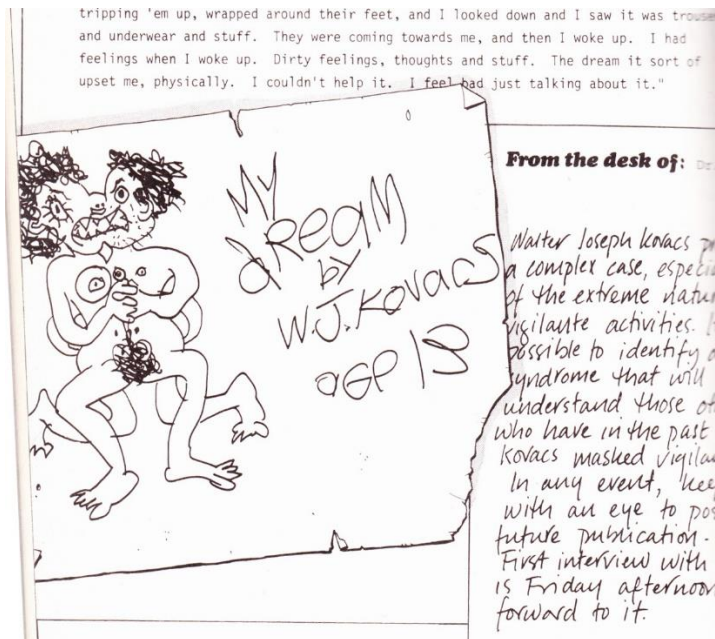 tripping 'em up, wrapped around their feet, and I looked down and I saw it was
and underwear and stuff. They were coming towards me, and then I woke up. I had
feelings when I woke up. Dirty feelings, thoughts and stuff. The dream it sort of
upset me, physically. I couldn't help it. I feel bad just talking about it."
MY
dReam
by
W.J. KOVACS
age 13
From the desk of:
Walter Joseph Kovacs
a complex case,
of the extreme
vigilante activities.
possible to identify
syndrome that will
understand those
who have in the past
Kovacs masked
In any event,
with an eye to
future publication.
First interview with
is Friday
forward to it.